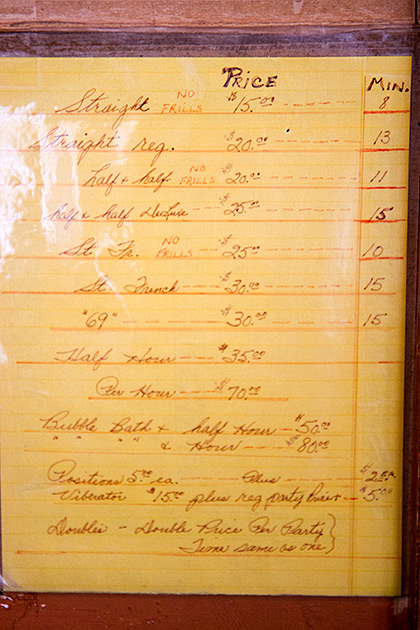 PRICE MIN.
Straight NO FRILLS $15.00 8
Straight reg. $20.00 13
half & half NO FRILLS $20.00 11
half & half Deluxe $25.00 15
St. Fr. NO FRILLS $25.00 10
St. French $30.00 15
"69" $30.00 15
Half Hour $35.00
Per Hour $70.00
Bubble Bath & half Hour - $50.00
" " " " & Hour - $80.00
Positions 5.00 ea. Plus $2 ea.
Viberator $15.00 plus reg party $5.00
Doubles - Double Price Per Party
Time same as one